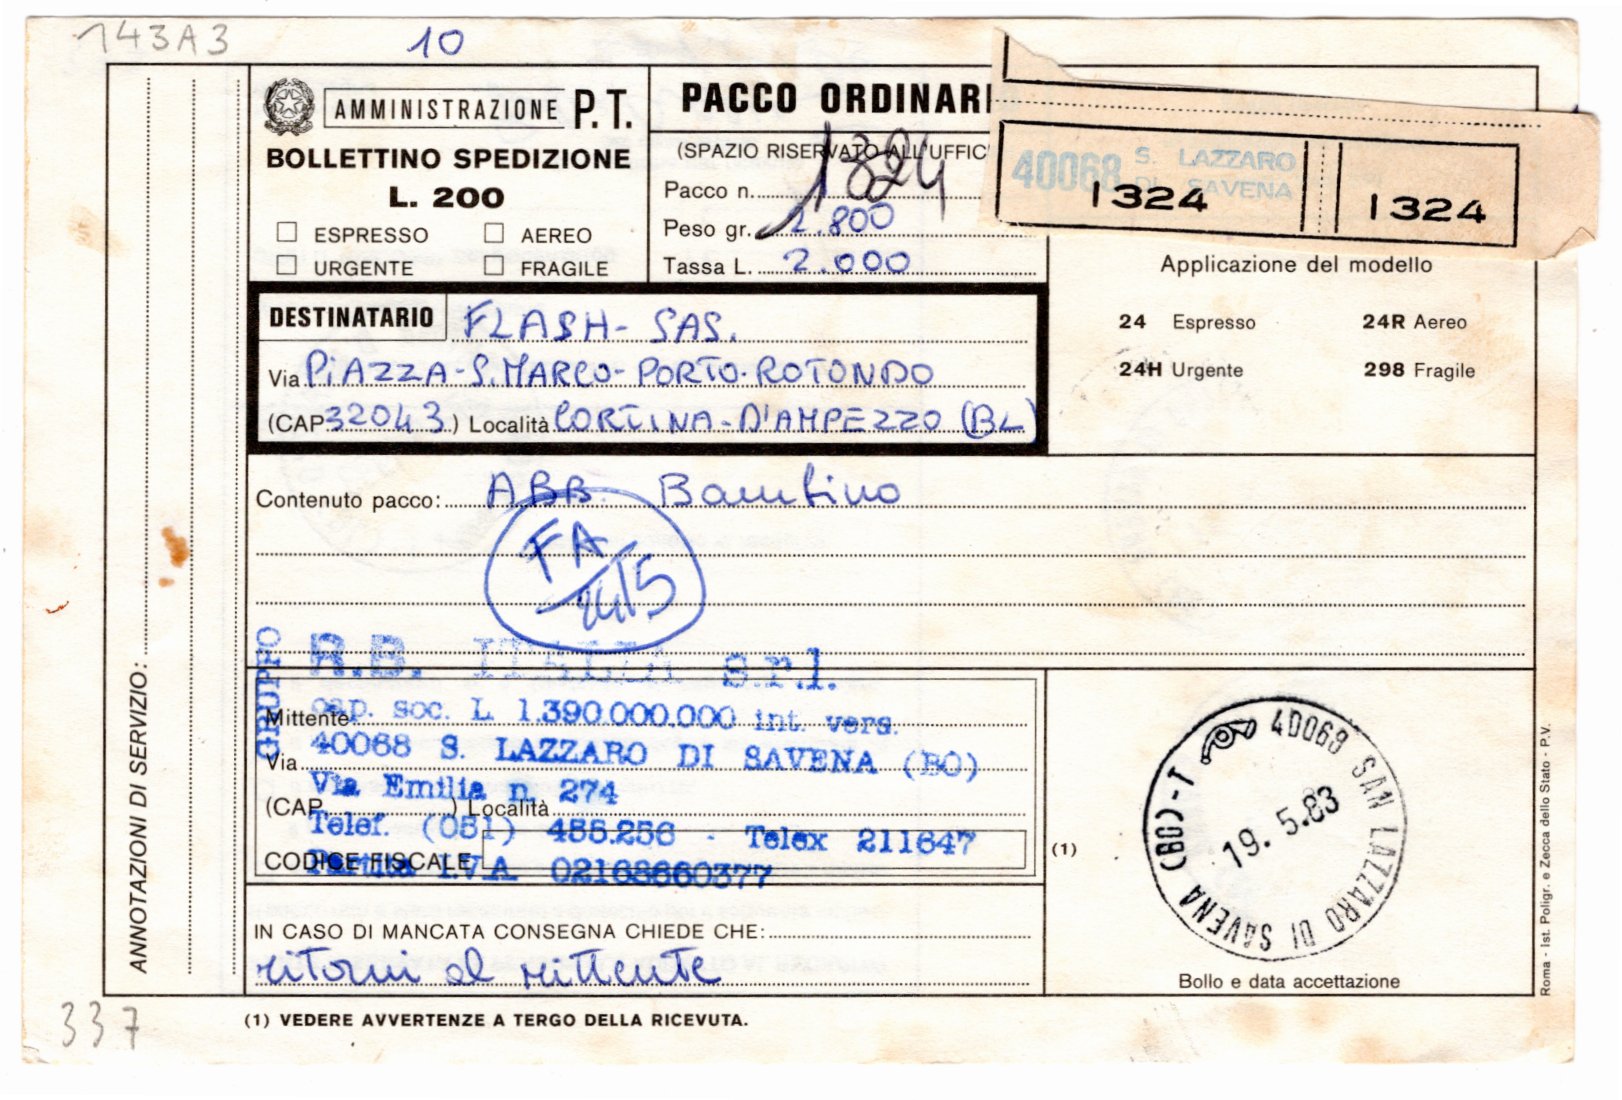 143A3
10
AMMINISTRAZIONE P.T.
BOLLETTINO SPEDIZIONE
L. 200
ESPRESSO AEREO
URGENTE FRAGILE
PACCO ORDINARI
(SPAZIO RISERVATO ALL'UFFIC
Pacco n. 1324
Peso gr. 2.800
Tassa L. 2.000
40068 S. LAZZARO
DI SAVENA
1324 1324
Applicazione del modello
24 Espresso 24R Aereo
24H Urgente 298 Fragile
DESTINATARIO FLASH-SAS.
Via PIAZZA-S.MARCO-PORTO-ROTONDO
(CAP 32043) Località CORTINA-D'AMPEZZO (BL)
Contenuto pacco: ABB. Bambino
FA
2415
GRUPPO R.B. ITALIA s.r.l.
Mittente cap. soc. L 1.390.000.000 int. vers.
Via 40068 S. LAZZARO DI SAVENA (BO)
Via Emilia n. 274
(CAP ) Località
Telef. (051) 455.256 - Telex 211647
CODICE FISCALE
Partita I.V.A. 02168660377
(1)
40068 SAN LAZZARO DI SAVENA (BO)-T
19.5.83
Bollo e data accettazione
IN CASO DI MANCATA CONSEGNA CHIEDE CHE:
ritorni al mittente
(1) VEDERE AVVERTENZE A TERGO DELLA RICEVUTA.
337
ANNOTAZIONI DI SERVIZIO:
Roma - Ist. Poligr. e Zecca dello Stato - P.V.